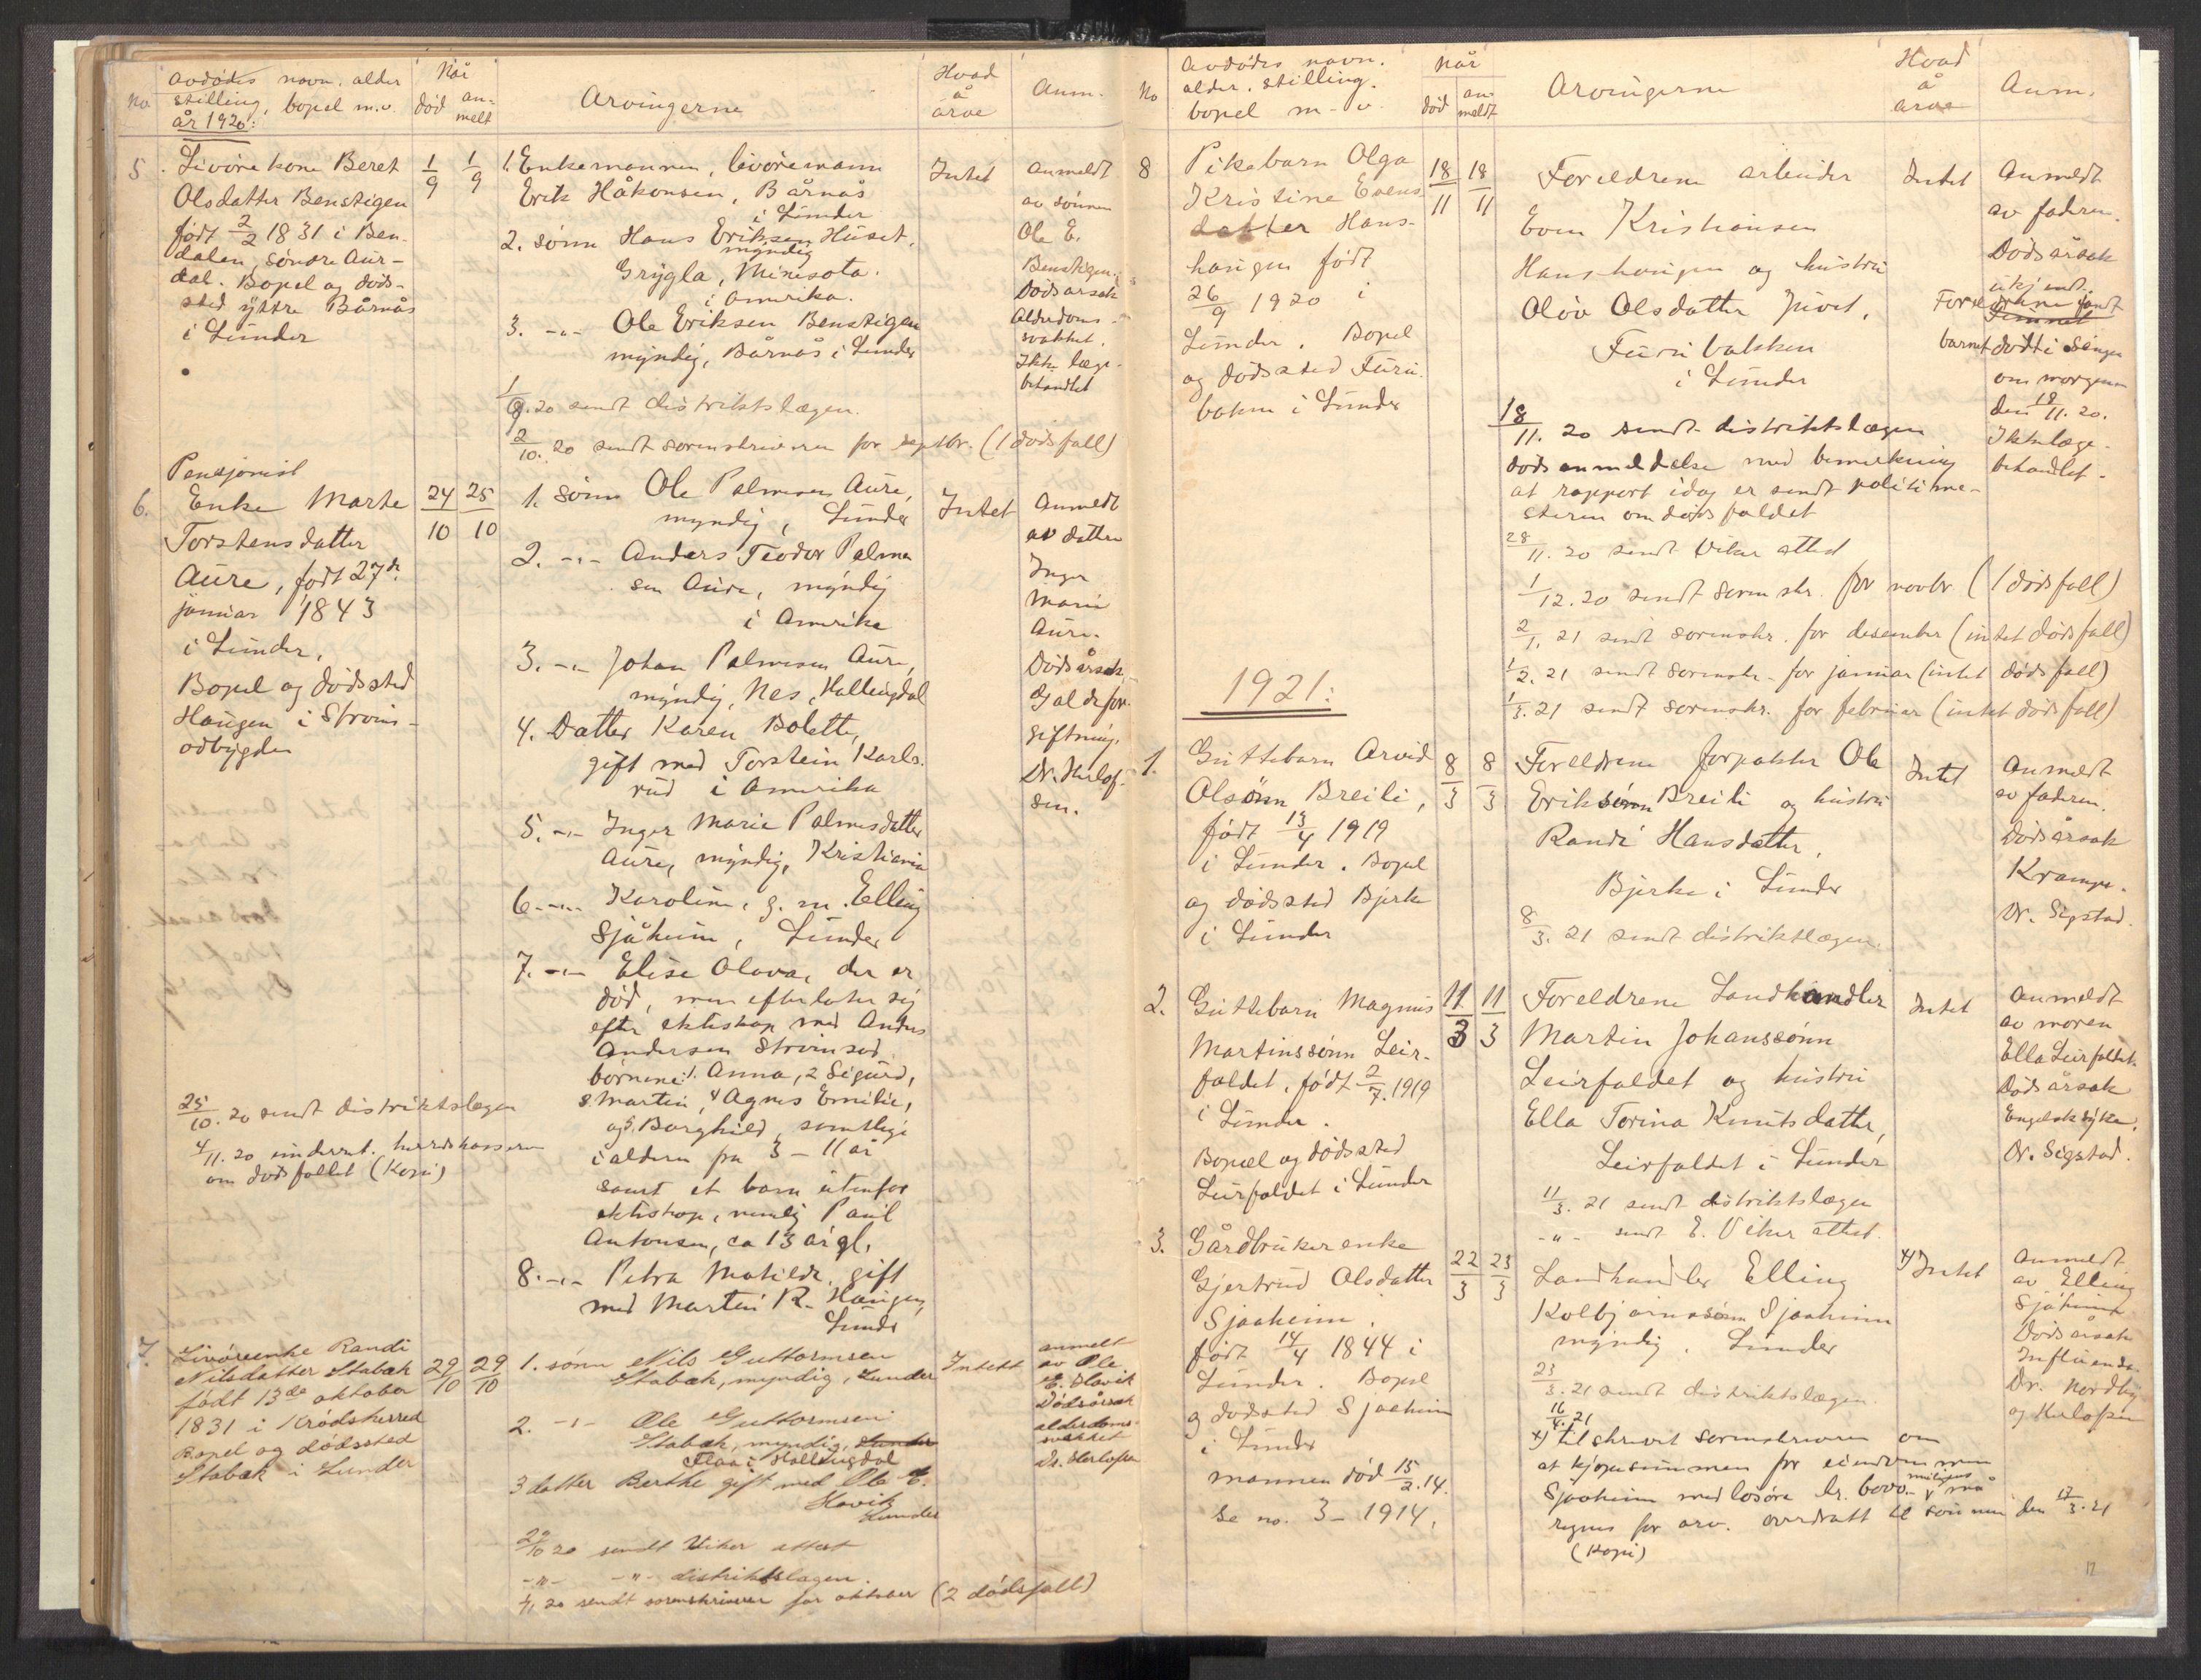 No
Avdødes navn, alder
stilling, bopel m.v.
år 1920:
Når
død
an-
melt
Arvingerne
Hvad
å
arve
Anm.
5.
Livørekone Beret
Olsdatter Benstigen
født 2/2 1831 i Ben-
dalen, søndre Aur-
dal. Bopel og døds-
sted yttre Bårnås
i Lunder
1/9
1/9
1. Enkemannen, livøremann
Erik Håkonsen, Bårnås
i Lunder
2. sønn Hans Eriksen Huset,
myndig
Grygla, Minisota.
i Amerika.
3. -"- Ole Eriksen Benstigen
myndig, Bårnås i Lunder
1/9.20 sendt distriktslægen.
2/10.20 sendt sorenskriveren for septbr. (1 dødsfall)
Intet
Anmeldt
av sønnen
Ole E.
Benstigen.
Dødsårsak
Alderdoms-
svakhet.
Ikke læge-
behandlet
6.
Pensjonist
Enke Marte
Torstensdatter
Aure, født 27de
januar 1843
i Lunder,
Bopel og dødssted
Haugen i Strøms-
odbygden
24/10
25/10
1. sønn Ole Palmesen Aure,
myndig, Lunder
2. -"- Anders Teodor Palme
sen Aure, myndig
i Amerika
3. -"- Johan Palmesen Aure,
myndig, Nes, Hallingdal
4. Datter Karen Bolette,
gift med Torstein Karls-
rud i Amerika
5. -"- Inger Marie Palmesdatter
Aure, myndig, Kristiania
6. -"- Karoline, g. m. Elling
Sjåheim, Lunder
7. -"- Elise Olava, der er
død, men efterlater sig
efter ekteskap med Anders
Andersen Strømsod
børnene: 1. Anna, 2 Sigurd,
3. Martin, 4 Agnes Emilie,
og 5. Borghild, samtlige
i alderen fra 3 - 11 år
samt et barn utenfor
ekteskap, nemlig Paul
Antonsen, ca 13 år gl.
8. -"- Petra Matilde, gift
med Martin R. Haugen,
Lunder
Intet
Anmeldt
av datter
Inger
Marie
Aure.
Dødsårsak
Galdefor-
giftning.
Dr. Herlof-
sen.
25/10.20 sendt distriktslægen
4/11.20 underret. herredskasseren
om dødsfallet (Kopi)
7.
Livøreenke Randi
Nilsdatter Stabæk
født 13de oktober
1831 i Krødsherred
Bopel og dødssted
Stabæk i Lunder
29/10
29/10
1. sønn Nils Guttormsen
Stabæk, myndig, Lunder
2. -"- Ole Guttormsen
Stabæk, myndig, Lunder
Flaa i Hallingdal
3 datter Berthe gift med Ole E.
Hovik
Lunder
29/10 20 sendt Viker attest
-"- -"- distriktslægen.
1/11 20 sendt sorenskriveren for oktober (2 dødsfall)
Intett
anmelt
av Ole
E. Hovik
Dødsårsak
alderdoms-
svakhet
Dr. Herlofsen
No
Avdødes navn.
alder, stilling.
bopel m-v.
Når
død
an-
meldt
Arvingerne
Hvad
å
arve
Anm.
8
Pikebarn Olga
Kristine Evens
datter Hans-
haugen født
26/9 1920 i
Lunder. Bopel
og dødssted Furu-
bakken i Lunder
18/11
18/11
Foreldrene arbeider
Even Kristiansen
Hanshaugen og hustru
Oløv Olsdatter Juvet,
Furubakken
i Lunder
18/11.20 sendt distriktslægen
dødsanmeldelse med bemerkning
at rapport idag er sendt politime-
steren om dødsfaldet
28/11.20 sendt Viker attest
1/12.20 sendt sorenskr. for novbr (1 dødsfall)
2/1.21 sendt sorenskr. for desember (intet dødsfall)
1/2.21 sendt sorenskr. for januar (intet dødsfall)
1/3.21 sendt sorenskr. for februar (intet dødsfall)
Intet
Anmeldt
av faderen.
Dødsårsak
ukjendt.
Foreldrene fandt
barnet dødt i sengen
om morgenen
den 18/11.20.
Ikke læge-
behandlet.
1921:
1.
Guttebarn Arvid
Olsønn Breili,
født 13/4 1919
i Lunder. Bopel
og dødssted Bjerke
i Lunder
8/3
8/3
Foreldrene forpakter Ole
Eriksønn Breili og hustru
Randi Hansdatter,
Bjerke i Lunder
8/3.21 sendt distriktslægen.
Intet
Anmeldt
av faderen.
Dødsårsak
Krampe.
Dr. Sigstad.
2.
Guttebarn Magnus
Martinssønn Leir-
faldet, født 2/7.1919
i Lunder.
Bopæl og dødssted
Leirfaldet i Lunder
11/3
11/3
Foreldrene Landhandler
Martin Johanssønn
Leirfaldet og hustru
Ella Torina Knutsdatter,
Leirfaldet i Lunder
11/3.21 sendt distriktslægen
-"- sendt E. Viker attest.
Intet
Anmeldt
av moren
Ella Leirfaldet
Dødsårsak
Engelsk syke.
Dr. Sigstad.
3.
Gårdbrukerenke
Gjertrud Olsdatter
Sjaaheim,
født 14/4 1844 i
Lunder. Bopel
og dødssted Sjaaheim
i Lunder
mannen død 15/2.14.
Se no. 3 - 1914.
22/3
23/3
Landhandler Elling
Kolbjørnssønn Sjaaheim
myndig. Lunder
23/3.21 sendt distriktslægen.
16/4.21
x) tilskrevet sorenskriveren om
at kjøpesummen for eiendommen
Sjaaheim med løsøre kr. 6000.- muligens må
regnes for arv. overdratt til sønnen den 17/3.21
(Kopi)
x) Intet
Anmeldt
av Elling
Sjåheim
Dødsårsak
Influenza.
Dr. Nordby
og Herlofsen
12